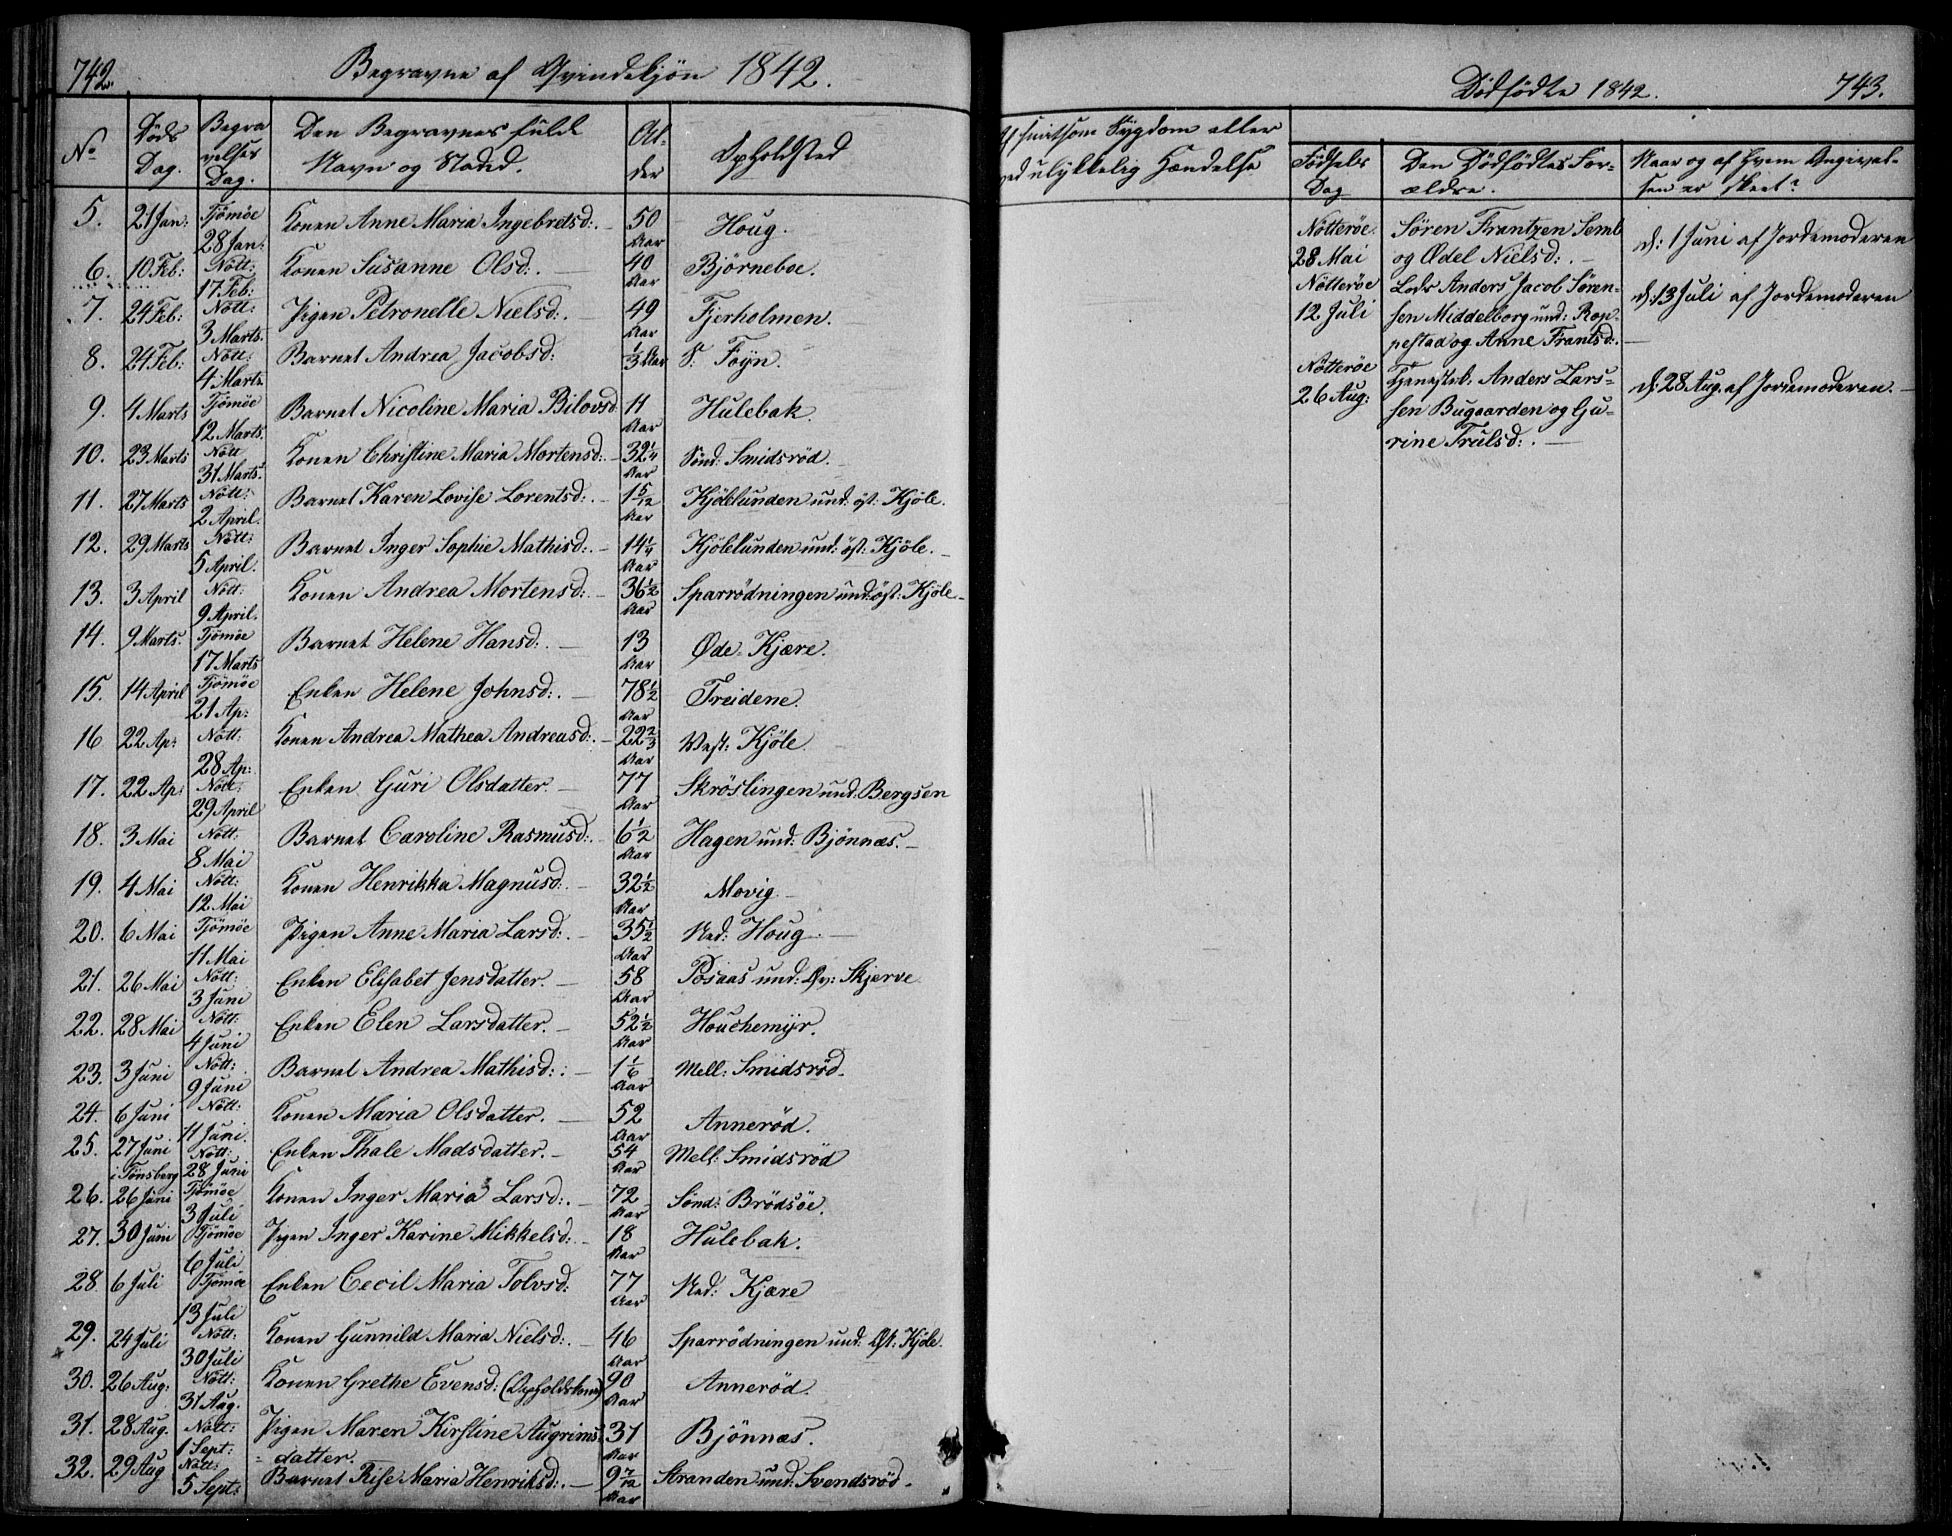 742.
Begravne af Qvindekjön 1842.
No
Döds Dag.
Begravelses Dag.
Den Begravnes fulde Navn og Stand.
Alder
Opholdsted
5. 21 Jan: Tjömöe 28 Jan: Konen Anne Maria Ingebretsd:. 50 Aar Houg.
6. 10 Feb: Nött: 17 Feb: Konen Susanne Olsd:. 40 Aar Björneboe.
7. 24 Feb: Nött: 3 Marts. Pigen Petronelle Nielsd:. 49 Aar Fjerholmen.
8. 24 Feb: Nött: 4 Marts. Barnet Andrea Jacobsd: 1/3 Aar S: Foyn.
9. 4 Marts Tjömöe 12 Marts. Barnet Nicoline Maria Bilovsd: 11 Aar Hulebak.
10. 23 Marts Nött 31 Marts. Konen Christine Maria Mortensd:. 32 1/4 Aar Sönd: Smidsröd.
11. 27 Marts Nött: 2 April. Barnet Karen Lovise Lorentsd:. 1 5/12 Aar Kjölelunden und: öst: Kjöle.
12. 29 Marts Nött: 5 April. Barnet Inger Sophie Mathisd:. 14 1/4 Aar Kjölelunden und: öst: Kjöle.
13. 3 April Nött: 9 April. Konen Andrea Mortensd:. 36 1/2 Aar Sparrödningen und: öst: Kjöle.
14. 9 Marts. Tjömöe 17 Marts Barnet Helene Hansd:. 13 Aar Øde-Kjære.
15. 14 April Tjömöe 21 Ap: Enken Helene Johnsd:. 78 1/2 Aar Treidene.
16 22 Ap: Nött: 28 Ap: Konen Andrea Mathea Andreasd:. 22 2/3 Aar Vest: Kjöle.
17. 22 Ap: Nött: 29 April Enken Guri Olsdatter. 77 Aar Skröslingen und: Bergsen
18. 3 Mai Nött: 8 Mai Barnet Caroline Rasmusd:. 6 1/2 Aar Hagen und: Bjönnæs.
19. 4 Mai Nött: 12 Mai Konen Henrikka Magnusd:. 32 1/2 Aar Movig.
20. 6 Mai Tjömöe 11 Mai Pigen Anne Maria Larsd:. 35 1/2 Aar Ned: Houg.
21. 26 Mai Nött: 3 Juni Enken Elisabet Jensdatter. 58 Aar Posaas und: Øv: Skjerve
22. 28 Mai Nött: 4 Juni Enken Elen Larsdatter. 52 1/2 Aar Houchemyr.
23. 3 Juni Nött: 9 Juni Barnet Andrea Mathisd:. 1 1/6 Aar Mell: Smidsröd.
24. 6 Juni Nött: 11 Juni. Konen Maria Olsdatter. 52 Aar Anneröd.
25. 27 Juni i Tönsberg Nött: 28 Juni Enken Thale Madsdatter. 54 Aar Mell: Smidsröd
26. 26 Juni Tjömöe 3 Juli Konen Inger Maria Larsd:. 72 Aar Sönd: Brödsöe.
27. 30 Juni Tjömöe 6 Juli Pigen Inger Karine Mikkelsd:. 18 Aar Hulebak.
28. 6 Juli Tjömöe 13 Juli Enken Cecil Maria Tolvsd: 77 Aar Ned: Kjære
29. 24 Juli Nött: 30 Juli Konen Gunnild Maria Nielsd:. 46 Aar Sparrödningen und: Øst: Kjöle.
30. 26 Aug: Nött: 31 Aug. Konen Grethe Evensd: (Opholdskone) 90 Aar Anneröd.
31. 28 Aug. Nött: 1 Sept: Pigen Maren Kirstine Augrimsdatter. 37 Aar Bjönnæs.
32. 29 Aug Nött: 5 Sept: Barnet Rise Maria Henriksd:. 9 7/12 Aar Stranden und: Svendsröd.
Af hvilken Sygdom eller
ved ulykkelig Hændelse
Dödfödte 1842.
743.
Födsels Dag
Den Dödfödtes Forældre.
Naar og af hvem Angivelsen er skeet?
Nötteröe. 28 Mai
Sören Frantzen Semb
og Ødel Nielsd:.
d: 1 Juni af Jordemoderen
Nötteröe 12 Juli
Lods Anders Jacob Sörensen
Middelborg und: Roppestad
og Anne Frantsd:.
d: 13 Juli af Jordemoderen
Nötteröe 26 Aug:
Tjenestek. Anders Larssen
Bugaarden og Gurine
Trulsd:.
d: 28 Aug. af Jordemoderen.